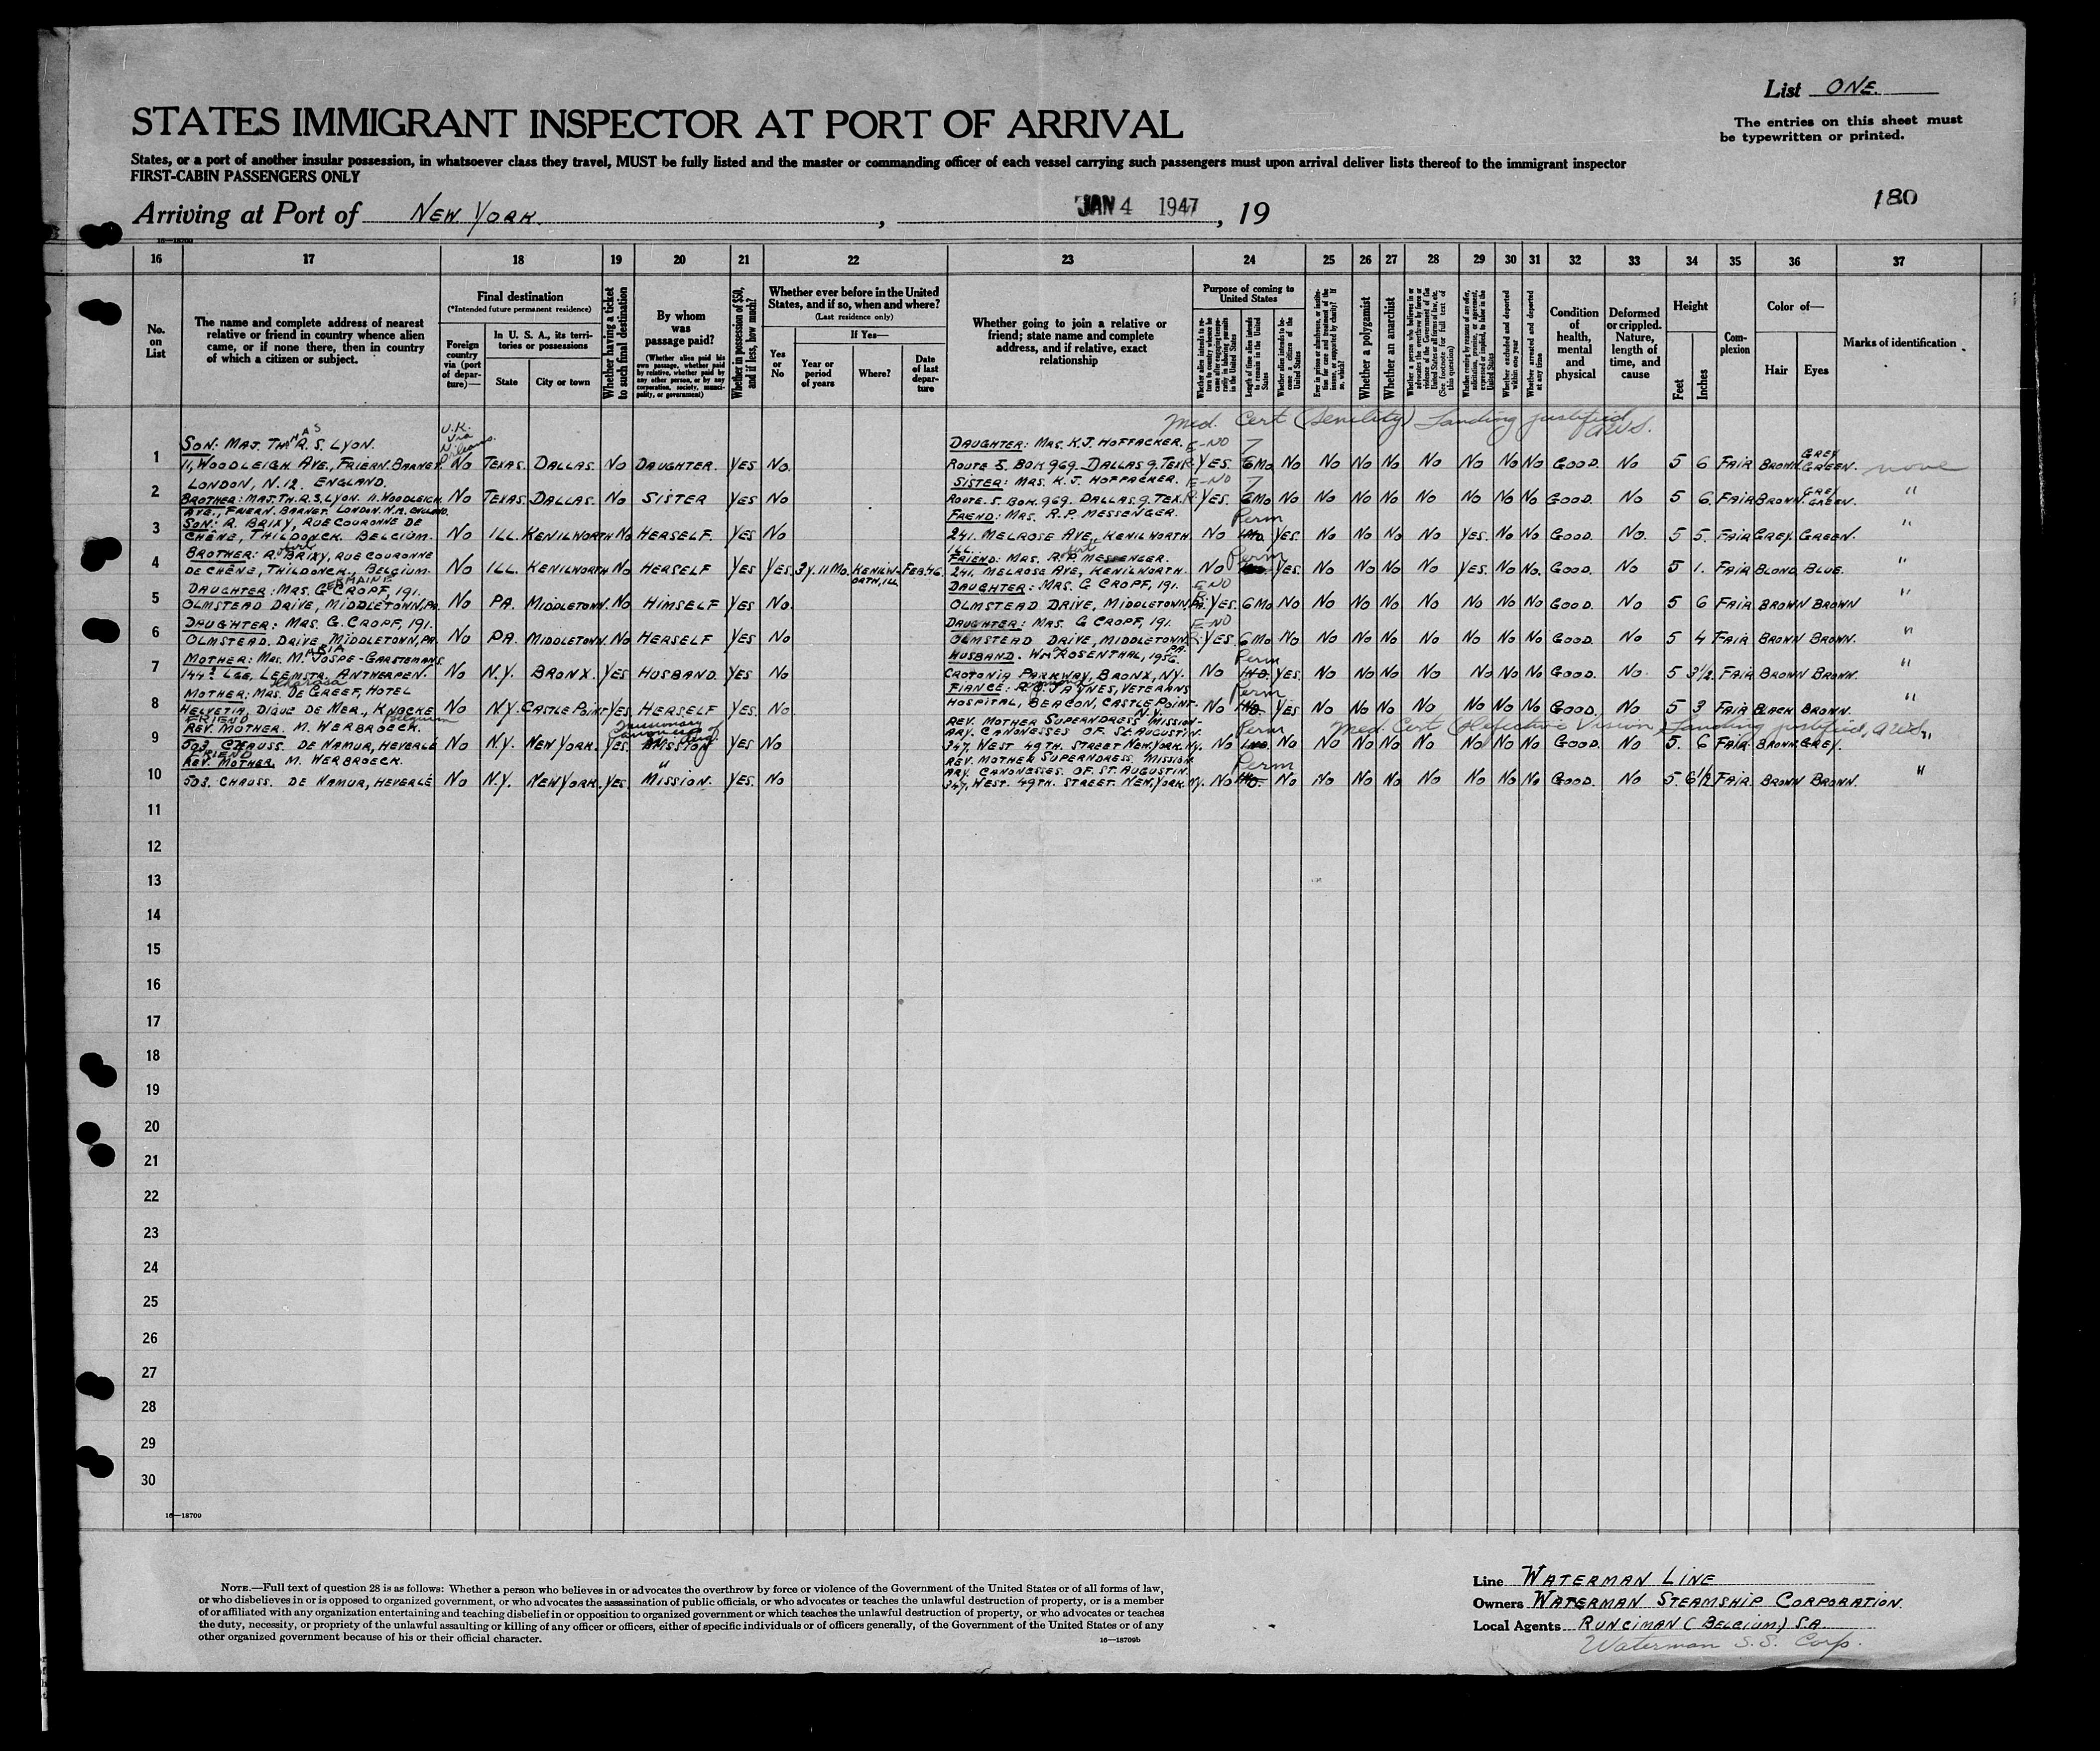 List ONE.
STATES IMMIGRANT INSPECTOR AT PORT OF ARRIVAL
The entries on this sheet must
be typewritten or printed.
States, or a port of another insular possession, in whatsoever class they travel, MUST be fully listed and the master or commanding officer of each vessel carrying such passengers must upon arrival deliver lists thereof to the immigrant inspector
FIRST-CABIN PASSENGERS ONLY
180
Arriving at Port of NEW YORK. , JAN 4 1947 , 19
16—18709
16 17 18 19 20 21 22 23 24 25 26 27 28 29 30 31 32 33 34 35 36 37
No. on List
The name and complete address of nearest relative or friend in country whence alien came, or if none there, then in country of which a citizen or subject.
Final destination
(*Intended future permanent residence)
Foreign country via (port of departure)—
In U. S. A., its territories or possessions
State
City or town
Whether having a ticket to such final destination
By whom was passage paid?
(Whether alien paid his own passage, whether paid by relative, whether paid by any other person, or by any corporation, society, municipality, or government)
Whether in possession of $50, and if less, how much?
Whether ever before in the United States, and if so, when and where?
(Last residence only)
Yes or No
If Yes—
Year or period of years
Where?
Date of last departure
Whether going to join a relative or friend; state name and complete address, and if relative, exact relationship
Purpose of coming to United States
Whether alien intends to return to country whence he came after engaging temporarily in laboring pursuits in the United States
Length of time alien intends to remain in the United States
Whether alien intends to become a citizen of the United States
Ever in prison or almshouse, or institution for care and treatment of the insane, or supported by charity? If so, which?
Whether a polygamist
Whether an anarchist
Whether a person who believes in or advocates the overthrow by force or violence of the Government of the United States or all forms of law, etc. (See footnote for full text of this question)
Whether coming by reasons of any offer, solicitation, promise, or agreement, expressed or implied, to labor in the United States
Whether excluded and deported within one year
Whether arrested and deported at any time
Condition of health, mental and physical
Deformed or crippled. Nature, length of time, and cause
Height
Feet
Inches
Complexion
Color of—
Hair
Eyes
Marks of identification
Med. Cert (Senility) Landing justified AWS.
U.K. via N. Orleans.
1 SON: MAJ. THOMAS R. S. LYON. 11, WOODLEIGH AVE., FRIERN. BARNET. LONDON, N.12. ENGLAND. No TEXAS. DALLAS. No DAUGHTER. YES No. DAUGHTER: MRS. K.J. HOFFACKER. ROUTE 5. BOX 969. DALLAS 9. TEX. E-NO R- YES. 6Mo No No No No No No No No GOOD. No 5 6 FAIR BROWN. GREY GREEN. none
2 BROTHER: MAJ. TH. R. S. LYON. 11. WOODLEIGH. AVE., FRIERN. BARNET. LONDON. N.12. ENGLAND. No TEXAS. DALLAS. No SISTER YES No SISTER: MRS. K. J. HOFFACKER. ROUTE. 5. BOX. 969. DALLAS. 9. TEX. E-NO R- YES. 6Mo No No No No No No No No GOOD. No 5 6. FAIR BROWN GREY GREEN. "
3 SON: R. BRIXY, RUE COURONNE DE CHÊNE, THILDONCK. BELGIUM. No ILL. KENILWORTH No HERSELF. YES No FRIEND: MRS. R.P. MESSENGER. 241. MELROSE AVE., KENILWORTH. ILL. No Perm YES. No No No No YES. No No GOOD. No. 5 5. FAIR GREY GREEN. "
4 BROTHER: R. BRIXY, RUE COURONNE DE CHÊNE, THILDONCK., BELGIUM. No ILL. KENILWORTH No HERSELF YES YES. 3 Y. 11 Mo. KENILWORTH, ILL FEB. 46. FRIEND: MRS. R.P. MESSENGER. 241. MELROSE AVE., KENILWORTH. No Perm YES. No No No No YES. No No. GOOD. No 5 1. FAIR BLOND. BLUE. "
5 DAUGHTER: MRS. GERMAINE CROPF, 191. OLMSTEAD DRIVE, MIDDLETOWN, PA. No PA. MIDDLETOWN. No HIMSELF YES No. DAUGHTER: MRS. G CROPF, 191. OLMSTEAD DRIVE, MIDDLETOWN, PA. E-NO R- YES. 6Mo No No No No No No No No GOOD. No 5 6 FAIR BROWN BROWN "
6 DAUGHTER: MRS. G. CROPF, 191. OLMSTEAD. DRIVE, MIDDLETOWN, PA. No PA. MIDDLETOWN. No HERSELF YES No DAUGHTER: MRS. G CROPF, 191. OLMSTEAD DRIVE, MIDDLETOWN. PA. E-NO R- YES. 6Mo No No No No No No No No GOOD. No 5 4 FAIR BROWN BROWN. "
7 MOTHER: MRS. MARIA JOSPE-GARSTEMANS. 144² LGE, LEEMSTR. ANTWERPEN. No N.Y. BRONX. YES HUSBAND. YES No HUSBAND. WM ROSENTHAL, 1956. CROTONIA PARKWAY, BRONX, N.Y. No Perm YES. No No No No No No No GOOD. No. 5 3½. FAIR BROWN BROWN. "
8 MOTHER: MRS. DE GREEF, HOTEL HELVETIA, DIGUE DE MER., KNOCKE Belgium No N.Y. CASTLE POINT YES. HERSELF YES. No FIANCE: R. JAYNES, VETERANS HOSPITAL, BEACON, CASTLE POINT. N.Y. No Perm YES No No No No No No No GOOD, No 5 3 FAIR BLACK BROWN. "
9 FRIEND REV. MOTHER. M. WERBROECK. 503. CHAUSS. DE NAMUR, HEVERLÉ No N.Y. NEW YORK. YES. Missionary Canonesses of St. Aug. MISSION YES No REV. MOTHER SUPERNDRESS MISSIONARY. CANONESSES OF. St. AUGUSTIN. 347. WEST 49TH. STREET NEW YORK. N.Y. No Perm No Med. Cert (Defective Vision) Landing justified, AWS. No No No No No No No GOOD. No 5. 6 FAIR. BROWN. GREY. "
10 FRIEND REV. MOTHER. M. WERBROECK. 503. CHAUSS. DE NAMUR, HEVERLÉ No N.Y. NEW YORK. YES. " MISSION. YES. No REV. MOTHER SUPERNDRESS. MISSIONARY. CANONESSES. OF. ST. AUGUSTIN. 347, WEST. 49TH. STREET. NEW, YORK. N.Y. No Perm No No No No No No No No GOOD. No 5. 6½ FAIR. BROWN BROWN. "
11
12
13
14
15
16
17
18
19
20
21
22
23
24
25
26
27
28
29
30
16—18709
NOTE.—Full text of question 28 is as follows: Whether a person who believes in or advocates the overthrow by force or violence of the Government of the United States or of all forms of law,
or who disbelieves in or is opposed to organized government, or who advocates the assassination of public officials, or who advocates or teaches the unlawful destruction of property, or is a member
of or affiliated with any organization entertaining and teaching disbelief in or opposition to organized government or which teaches the unlawful destruction of property, or who advocates or teaches
the duty, necessity, or propriety of the unlawful assaulting or killing of any officer or officers, either of specific individuals or of officers generally, of the Government of the United States or of any
other organized government because of his or their official character.
16—18709b
Line WATERMAN LINE
Owners WATERMAN STEAMSHIP CORPORATION.
Local Agents RUNCIMAN (BELGIUM) S.A.
Waterman S.S. Corp.